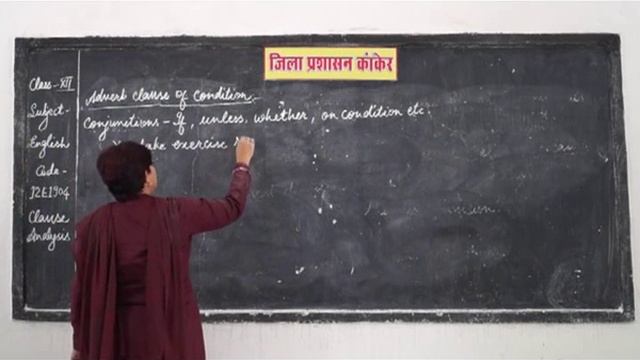 जिला प्रशासन कांकेर
Class-XII
Subject-
English
Code-
12E1904
Clause
Analysis
Adverb clause of condition:-
Conjunctions - If, unless, whether, on condition etc.
take exercise